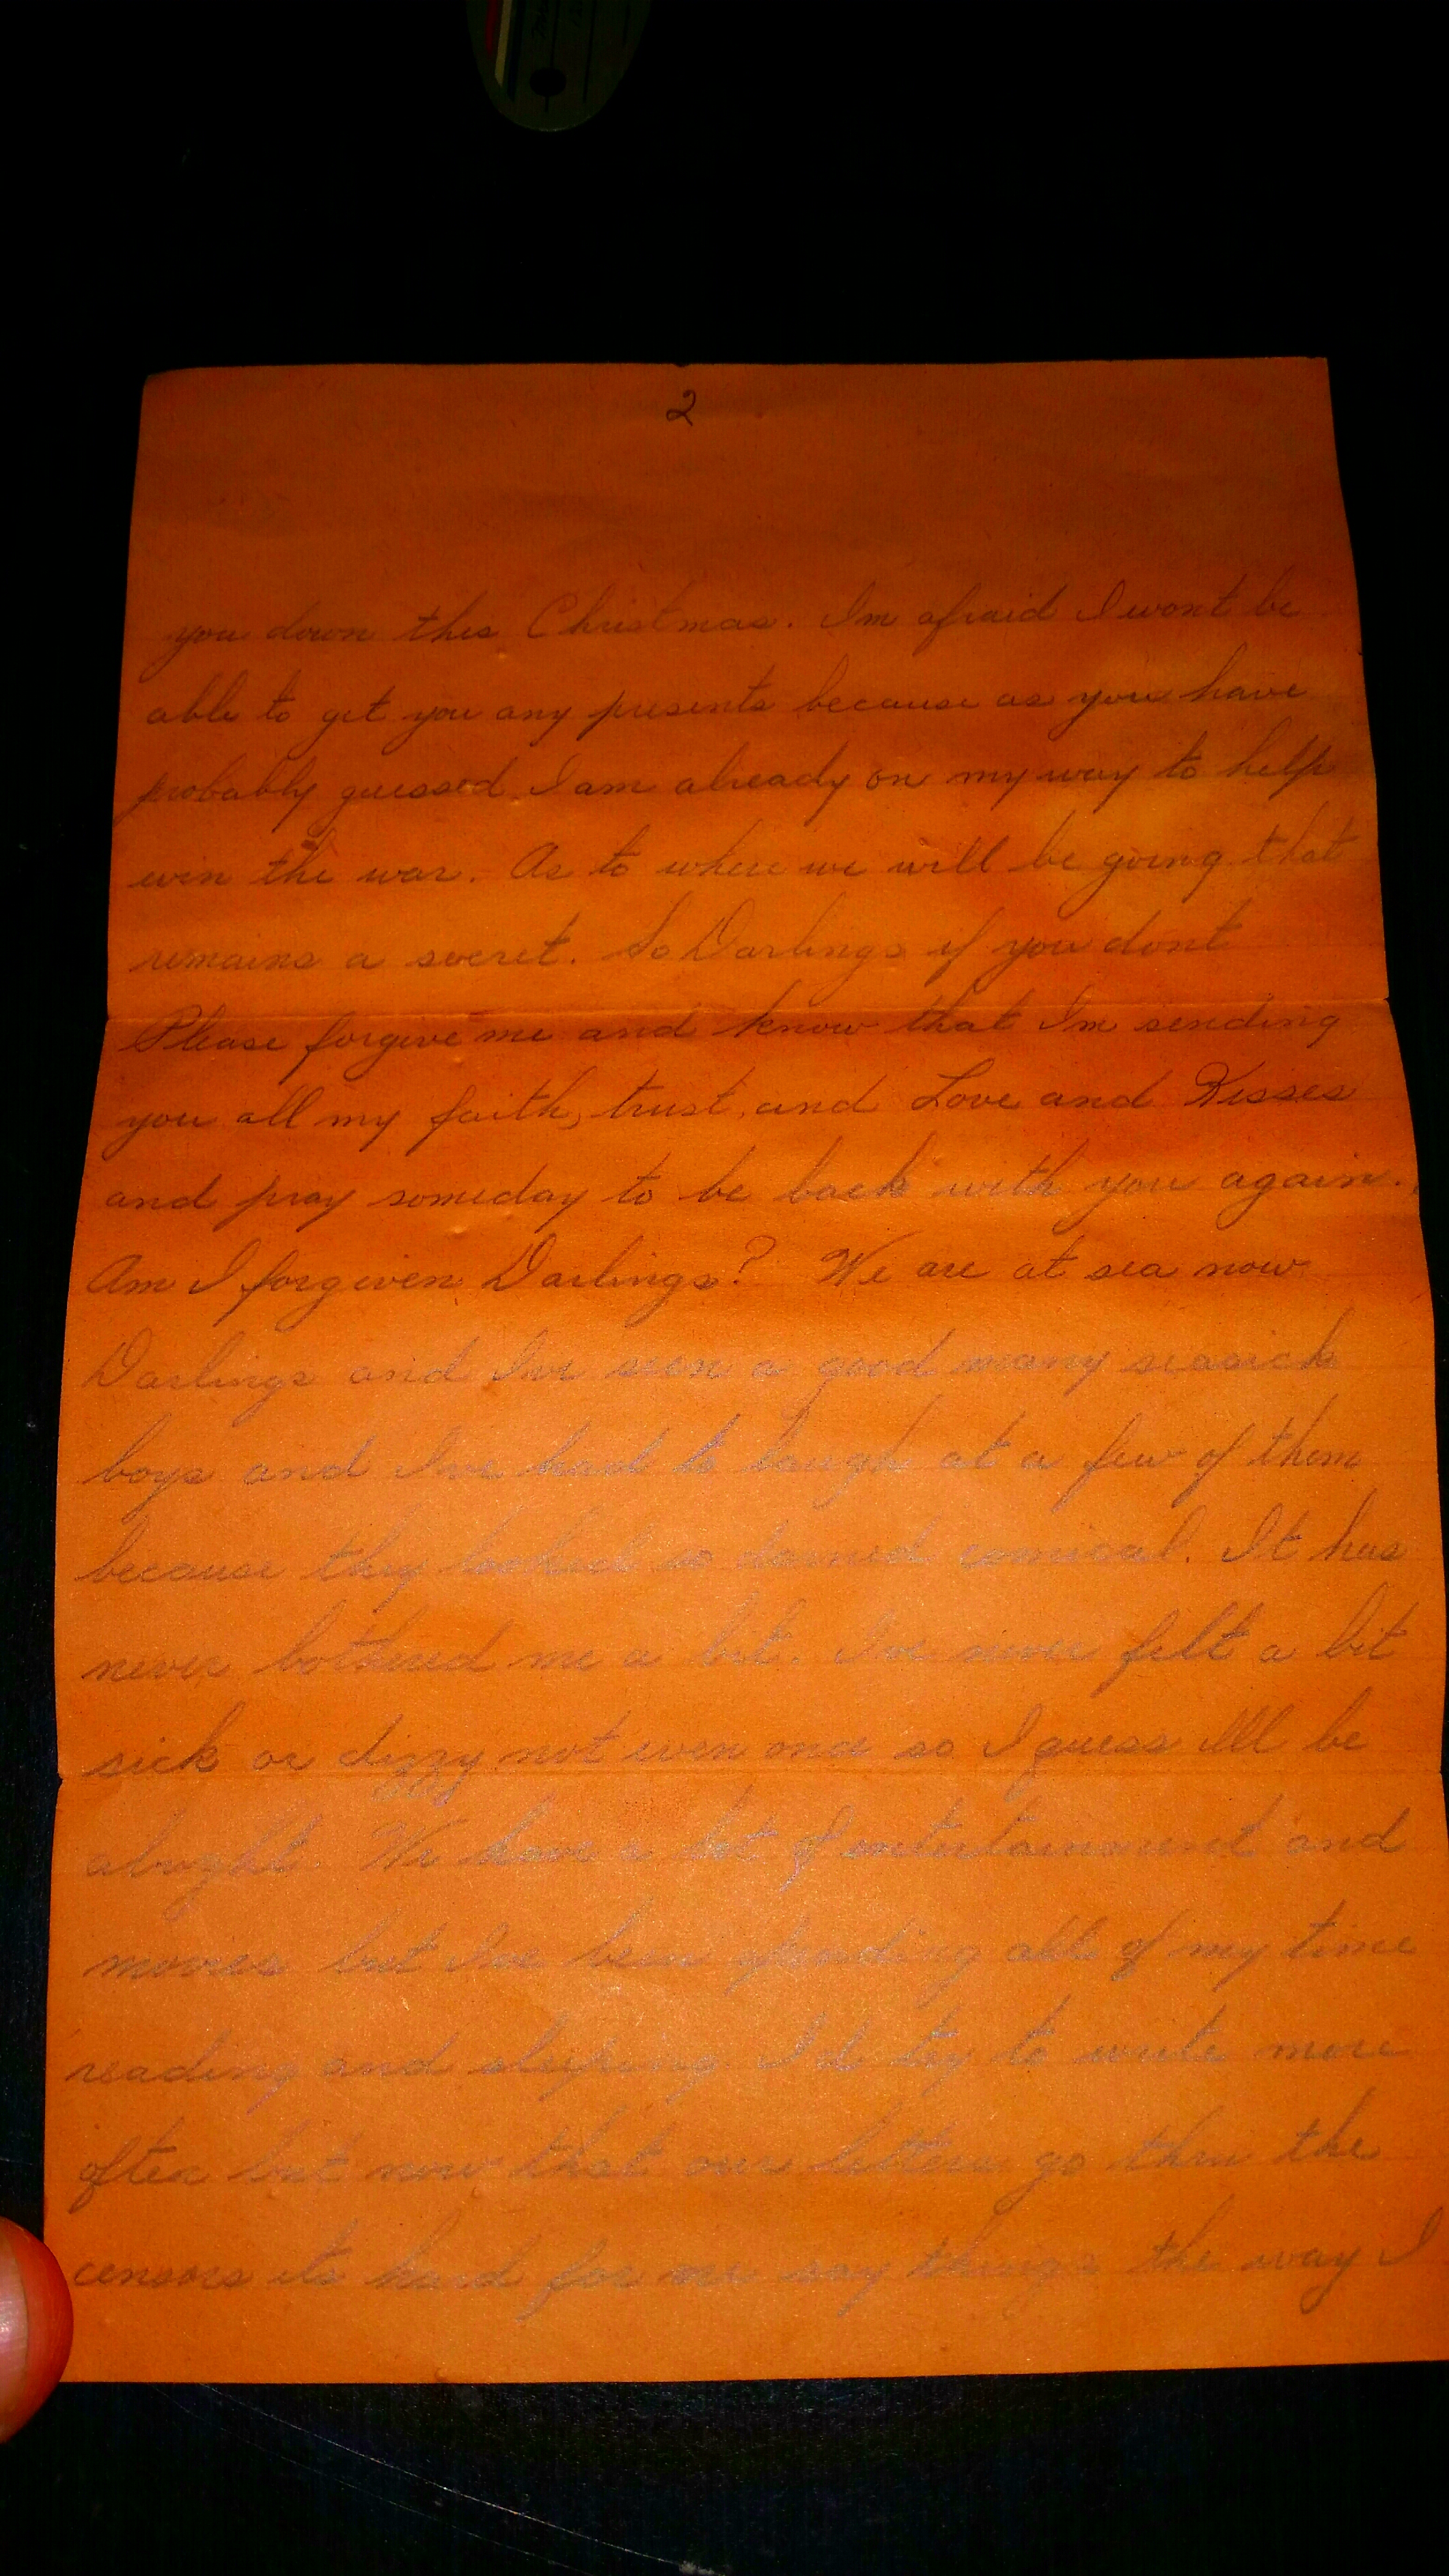 2
you down this Christmas. Im afraid I wont be
able to get you any presents because as you have
probably guessed I am already on my way to help
win the war. As to where we will be going that
remains a secret. So Darlings if you dont
Please forgive me and know that Im sending
you all my faith, trust, and Love and Kisses
and pray someday to be back with you again.
Am I forgiven Darlings? We are at sea now
Darlings and Ive seen a good many seasick
boys and Ive had to laugh at a few of them
because they looked so darned comical. It has
never bothered me a bit. Ive never felt a bit
sick or dizzy not even once so I guess Ill be
alright. We have a lot of entertainment and
movies but Ive been spending all of my time
reading and sleeping. I'd try to write more
often but now that our letters go thru the
censors its hard for me say things the way I